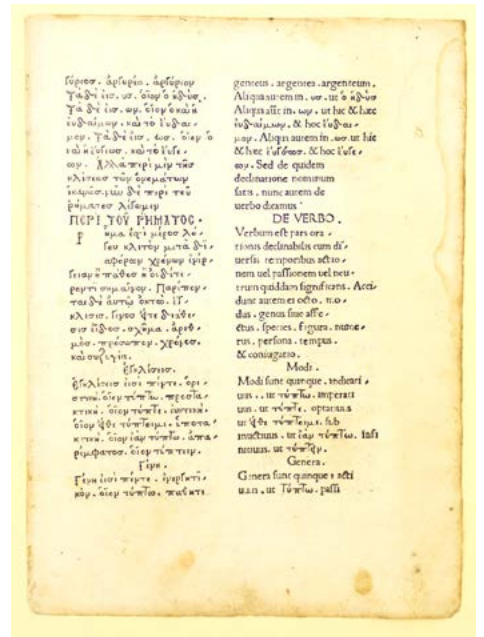 γύρεος. ἀργυρέα. ἀργύρεον
Τὰ δὲ εἰς. υς. οἷον ὁ ἡδύς
Τὰ δὲ εἰς. ων. οἷον ὁ καὶ ἡ
ἐυδαίμων. καὶ τὸ ἔυδαι-
μον. Τὰ δὲ εἰς. ως. οἷον ὁ
καὶ ἡ
ων. Ἀλλὰ περὶ μὲν τῆς
κλίσεως τῶν ὀνομάτων
δὲ περὶ τοῦ
ῥήματος λέξωμεν
ΠΕΡΙ ΤΟΥ ΡΗΜΑΤΟΣ.
ῥῆμα ἐστὶ μέρος λό-
γου κλιτὸν μετὰ δι-
αφόρων χρόνων ἐνέρ-
γειαν ἢ πάθος ἢ
σημαῖνον. Παρέπον-
ται δὲ αὐτῷ ὀκτώ. ἔγ-
κλισις. γένος ἤτε διάθε-
σις εἶδος. σχῆμα. ἀριθ-
μὸς. πρόσωπον. χρόνος.
καὶ συζυγία.
ἐγκλίσεις.
ἐγκλίσεις εἰσὶ πέντε. ὁρι-
στική. οἷον τύπτω. προστα-
κτική. οἷον τύπτε. ευκτική.
οἷον εἴθε τύπτοιμι. ὑποτα-
κτική. οἷον ἐὰν τύπτω. ἀπα-
ρέμφατος. οἷον τύπτειν.
Γένη.
Γένη εἰσὶ πέντε. ἐνεργητι-
κὸν. οἷον τύπτω. παθητι
genteus. argentea. argenteum.
Aliqua autem in. υς. ut ὁ ἡδύς
Aliqua aut̃ in. ων. ut hic & hæc
ἐυδαίμων. & hoc ἔυδαι-
μον. Aliqua autem in. ως ut hic
& hæc ἔυγεως. & hoc ἔυγε-
ων. Sed de quidem
declinatione nominum
satis. nunc autem de
uerbo dicamus.
DE VERBO.
Verbum est pars ora-
tionis declinabilis cum di-
uersis temporibus actio-
nem uel passionem uel neu-
trum quiddam significans. Acci-
dunt autem ei octo. mo-
dus. genus siue affe-
ctus. species. figura. nume-
rus. persona. tempus.
& coniugatio.
Modi.
Modi sunt quinque. indicati-
uus. ut τύπτω. imperati
uus. ut τύπτε. optatiuus
ut εἴθε τύπτοιμι. sub
iunctiuus. ut ἐὰν τύπτω. infi
nitiuus. ut τύπτειν.
Genera.
Genera sunt quinque. acti
uum. ut Τύπτω. passi